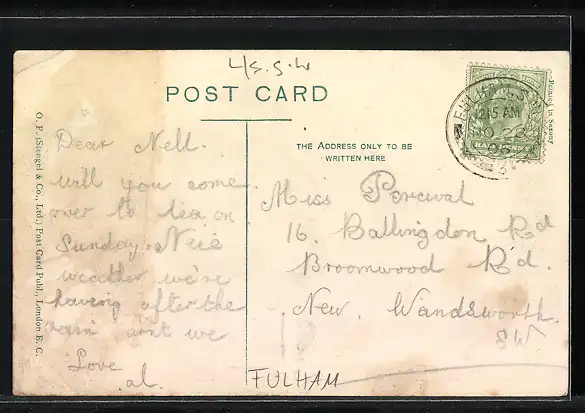 4/S.S.W
POST CARD
THE ADDRESS ONLY TO BE
WRITTEN HERE
Printed in Saxony
FULHAM S.W
12.15 AM
NO 26
08
HALFPENNY
O. F. (Stengel & Co., Ltd.) Post Card Publ., London E. C.
Dear Nell.
will you come
over to tea on
Sunday. Nice
weather we're
having after the
rain arnt we
Love
al.
Miss Percival
16. Ballingdon Rd
Broomwood R'd.
New. Wandsworth.
SW.
FULHAM